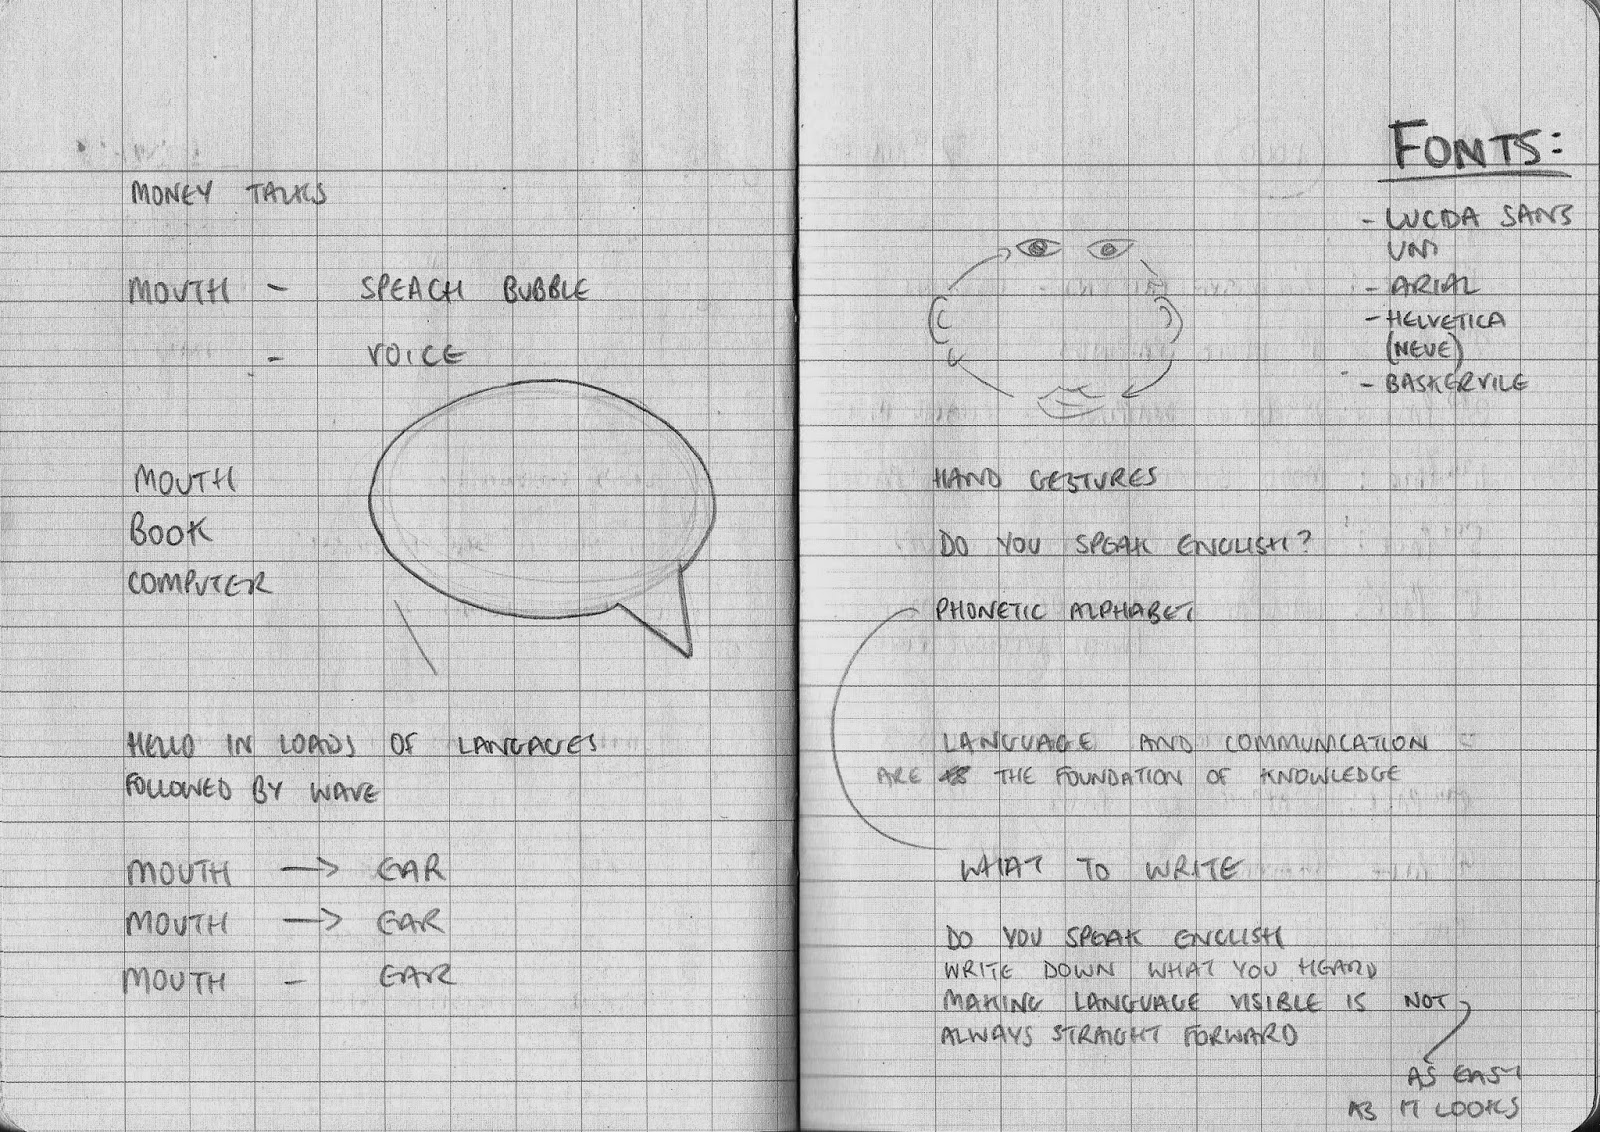 MONEY TALKS
MOUTH - SPEACH BUBBLE
- VOICE
MOUTH
BOOK
COMPUTER
HELLO IN LOADS OF LANGAGES
FOLLOWED BY WAVE
MOUTH → EAR
MOUTH → EAR
MOUTH - EAR
FONTS:
- LUCIDA SANS
UNI
- ARIAL
- HELVETICA
(NEUE)
- BASKERVILE
HAND GESTURES
DO YOU SPEAK ENGLISH?
PHONETIC ALPHABET
LANGUAGE AND COMMUNICATION
ARE THE FOUNDATION OF KNOWLEDGE
WHAT TO WRITE
DO YOU SPEAK ENGLISH
WRITE DOWN WHAT YOU HEARD
MAKING LANGUAGE VISIBLE IS NOT
ALWAYS STRAIGHT FORWARD
AS EASY
AS IT LOOKS